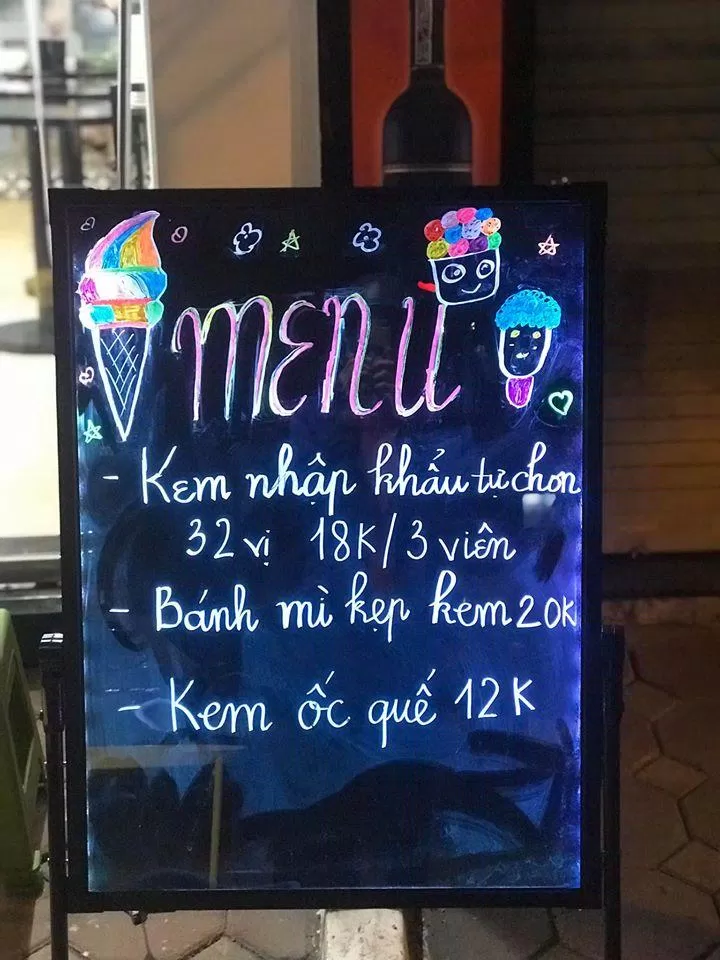 MENU
- Kem nhập khẩu tự chọn
32 vị 18K/3 viên
- Bánh mì kẹp kem 20K
- Kem ốc quế 12K